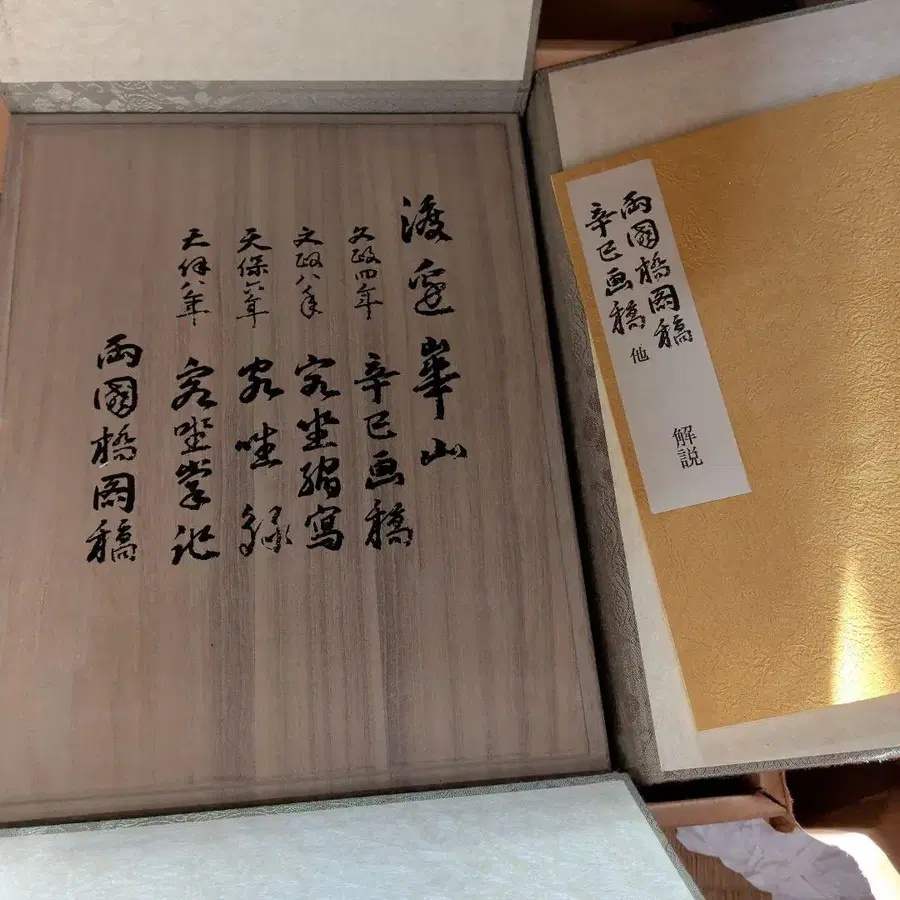 渡邊崋山
文政四年 辛巳画稿
文政八年 客坐縮寫
天保六年 客坐録
天保八年 客坐掌記
兩國橋圖稿
兩國橋圖稿
辛巳画稿 他
解説